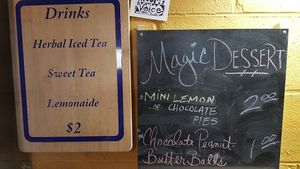 Drinks
Herbal Iced Tea
Sweet Tea
Lemonaide
$2
Magic DESSERT
MINI LEMON
OR CHOCOLATE
PIES
2.00
Chocolate Peanut
Butter Balls
1.00